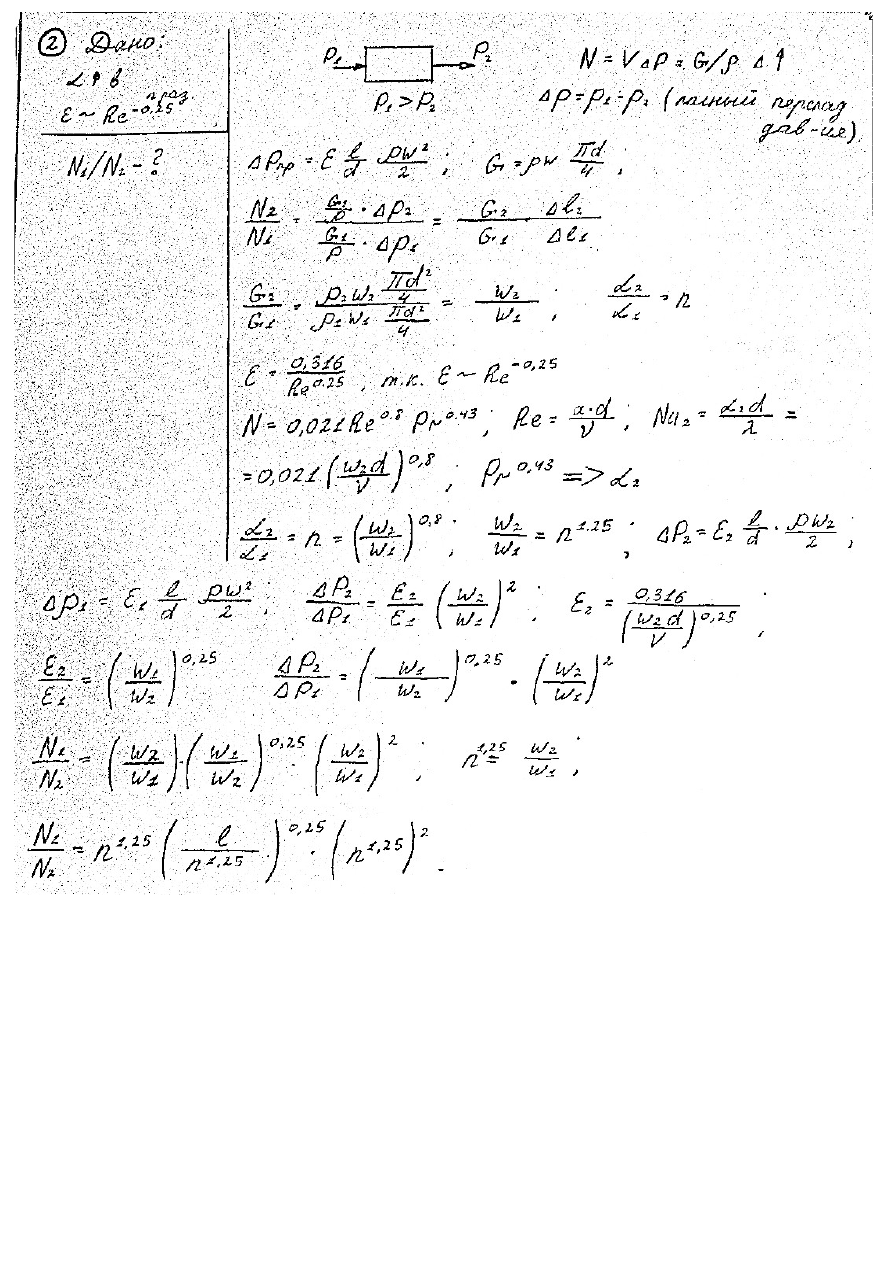 ② Дано:
α ↑ в
n раз
ε ~ Re^-0.25
N₁/N₂ - ?
P₁ P₂
P₁ > P₂
N = VΔP = G/ρ Δ
ΔP = P₁ - P₂ (полный перепад
дав-ия)
ΔPтр = ε l/d ρw²/2 ; G = ρw πd/4 ;
N₂/N₁ = (G₂/ρ · ΔP₂)/(G₁/ρ · ΔP₁) = G₂/G₁ Δl₂/Δl₁
G₂/G₁ = (ρ₂w₂ πd²/4)/(ρ₁w₁ πd²/4) = w₂/w₁ ; α₂/α₁ = n
ε = 0,316/Re^0.25 , т.к. ε ~ Re^-0,25
N = 0,021 Re^0.8 Pr^0.43 ; Re = x·d/ν ; Nu₂ = α₂d/λ =
= 0,021 (w₂d/ν)^0,8 ; Pr^0,43 => α₂
α₂/α₁ = n = (w₂/w₁)^0,8 ; w₂/w₁ = n^1.25 ; ΔP₂ = ε₂ l/d · ρw₂/2 ;
Δp₁ = ε₁ l/d ρw²/2 ; ΔP₂/ΔP₁ = ε₂/ε₁ (w₂/w₁)² ; ε₂ = 0,316/(w₂d/ν)^0,25 ;
ε₂/ε₁ = (w₁/w₂)^0,25 ΔP₂/ΔP₁ = (w₁/w₂)^0,25 · (w₂/w₁)²
N₁/N₂ = (w₂/w₁)·(w₁/w₂)^0,25 · (w₂/w₁)² ; n^1,25 = w₂/w₁ ;
N₁/N₂ = n^1,25 (l/n^1,25)^0,25 · (n^1,25)² .